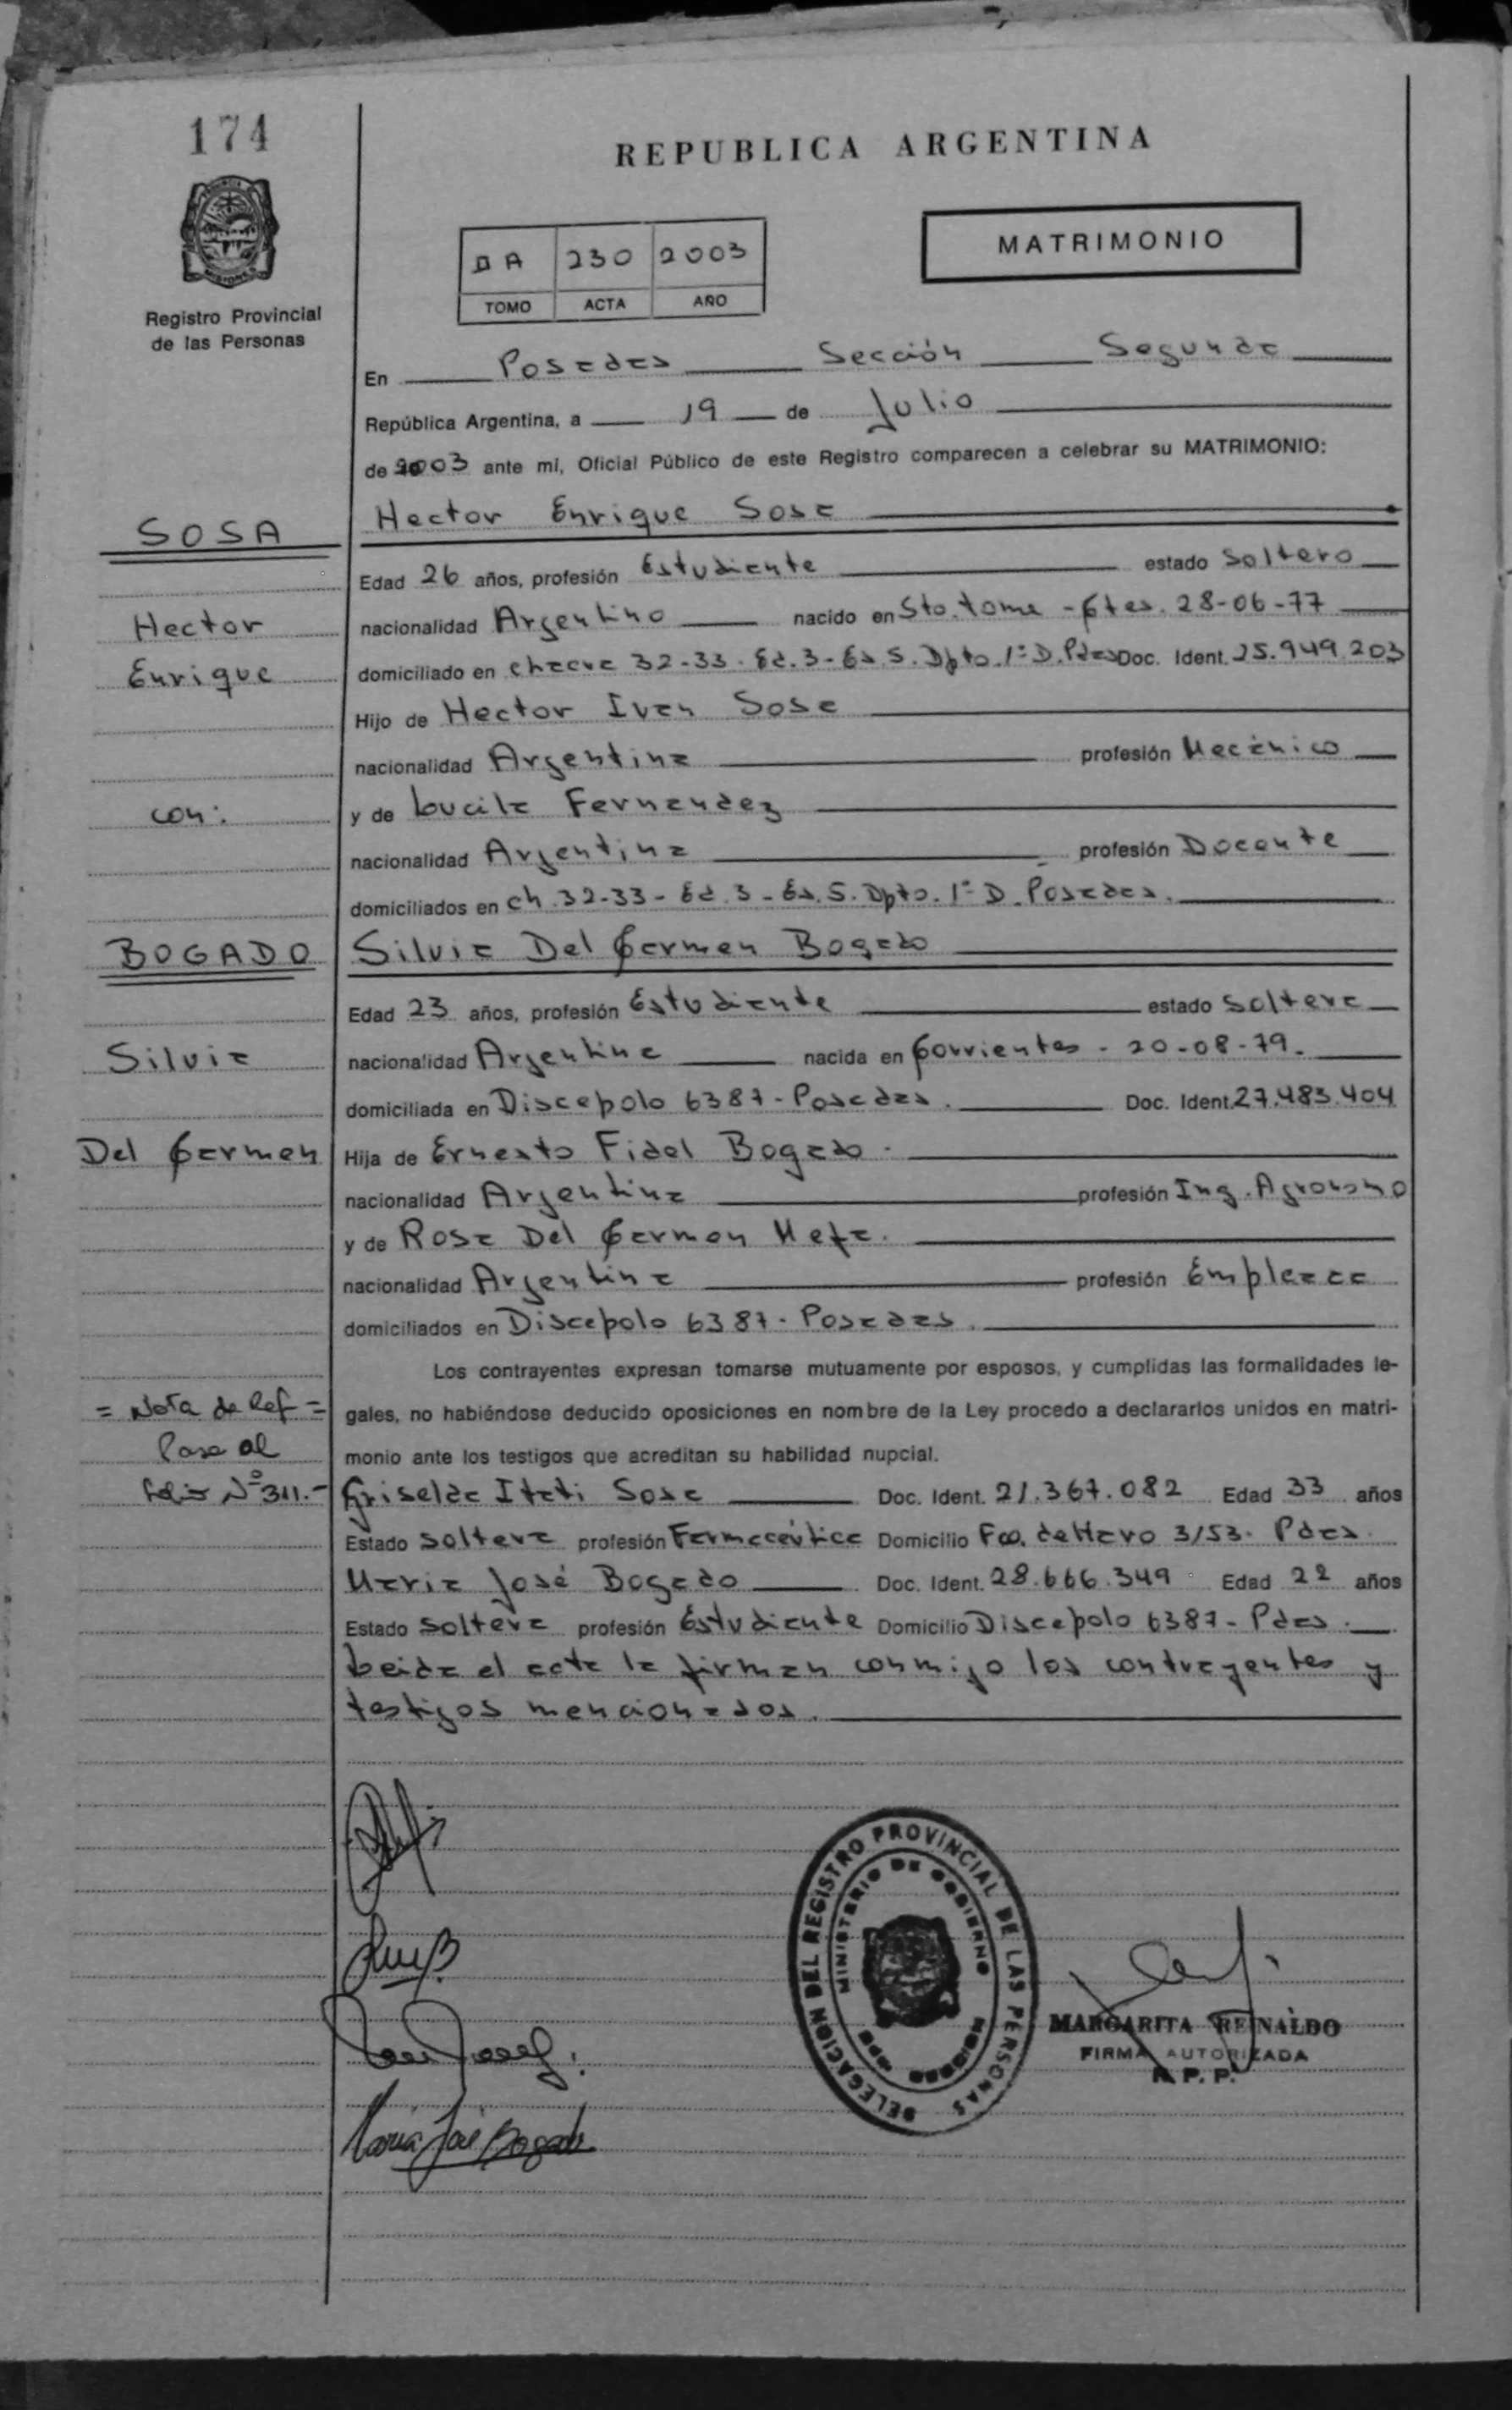 174
REPUBLICA ARGENTINA
MATRIMONIO
II A 230 2003
TOMO ACTA AÑO
Registro Provincial
de las Personas
En Posadas Sección Segunda
República Argentina, a 19 de Julio
de 2003 ante mí, Oficial Público de este Registro comparecen a celebrar su MATRIMONIO:
SOSA
Hector Enrique Sosa
Edad 26 años, profesión Estudiante estado Soltero
Hector
nacionalidad Argentino nacido en Sto. tome - Ctes. 28-06-77
Enrique
domiciliado en chacra 32-33. Ed. 3- Es. 5. Dpto. 1º D. Pdas Doc. Ident. 25.949.203
Hijo de Hector Ivan Sosa
nacionalidad Argentina profesión Mecánico
con:
y de Lucila Fernandez
nacionalidad Argentina profesión Docente
domiciliados en ch. 32-33- Ed. 3- Es. 5. Dpto. 1º D. Posadas.
BOGADO
Silvia Del Carmen Bogado
Edad 23 años, profesión Estudiante estado Soltera
Silvia
nacionalidad Argentina nacida en Corrientes - 20-08-79.
domiciliada en Discepolo 6387- Posadas. Doc. Ident. 27.483.404
Del Carmen
Hija de Ernesto Fidel Bogado.
nacionalidad Argentina profesión Ing. Agronomo
y de Rosa Del Carmen
nacionalidad Argentina profesión Empleada
domiciliados en Discepolo 6387- Posadas.
Los contrayentes expresan tomarse mutuamente por esposos, y cumplidas las formalidades le-
gales, no habiéndose deducido oposiciones en nombre de la Ley procedo a declararlos unidos en matri-
monio ante los testigos que acreditan su habilidad nupcial.
= Nota de Ref =
Pasa al
folio Nº 311.-
Griselda Itati Sosa Doc. Ident. 21.367.082 Edad 33 años
Estado Soltera profesión Farmacéutica Domicilio Fco. de Haro 3153. Pdas.
Maria José Bogado Doc. Ident. 28.666.349 Edad 22 años
Estado Soltera profesión Estudiante Domicilio Discepolo 6387- Pdas.
Leida el acta la firman conmigo los contrayentes y
testigos mencionados.
DELEGACION DEL REGISTRO PROVINCIAL DE LAS PERSONAS
MINISTERIO DE GOBIERNO
MARGARITA REINALDO
FIRMA AUTORIZADA
R. P. P.
Maria José Bogado